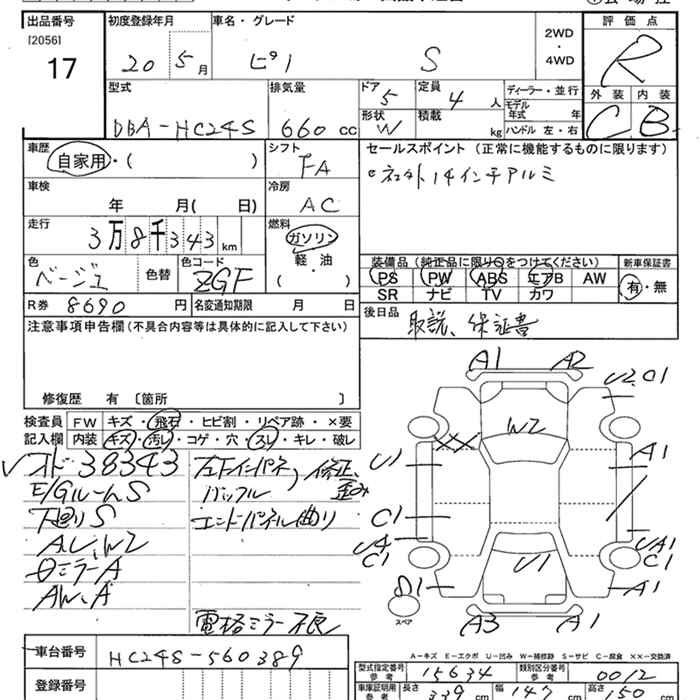 出品番号 初度登録年月 車名・グレード 2WD・4WD 評価点
[2056]
17
20 5月 ピノ S R
型式 排気量 ドア 5 定員 4人 ディーラー・並行 外装 内装
モデル年式 年
DBA-HC24S 660cc 形状 W 積載 kg ハンドル 左・右 C B
車歴 シフト セールスポイント(正常に機能するものに限ります)
自家用・( ) FA
14インチアルミ
車検 冷房
年 月( 日) AC
走行 燃料
3万8千343km ガソリン
軽・油
( )
装備品(純正品に限り○をつけてください) 新車保証書
色 色替 色コード
ベージュ ZGF
PS PW ABS エアB AW 有・無
SR ナビ TV カワ
R券 8690円 名変通知期限 月 日
後日品 取説、保証書
注意事項申告欄(不具合内容等は具体的に記入して下さい)
修復歴 有 〔箇所 〕
検査員 FW キズ・飛石・ヒビ割・リペア跡・×要
記入欄 内装 キズ・汚レ・コゲ・穴・スレ・キレ・破レ
38343 左下インパネ 修正、歪み
E/GルームS バッフル
下廻りS エンドパネル曲り
A.U、W2
ミラーA
AW、A
電格ミラー不良
A1 A2
U2、C1
W2
U1 A1
C1
UA4 C1 U1 UA1 C1
D1 A1
スペア
A3 A1
A-キズ E-エクボ U-凹み W-補修跡 S-サビ C-腐食 XX-交換済
車台番号 HC24S-560389
型式指定番号 参考 15634 類別区分番号 参考 0012
登録番号
車庫証明用 参考 長さ 339cm 幅 147cm 高さ 150cm